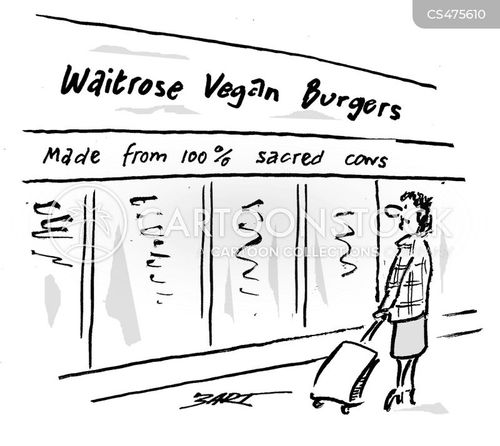 CS475610
Waitrose Vegan Burgers
Made from 100% sacred cows
CARTOONSTOCK
CARTOON COLLECTIONS
BART